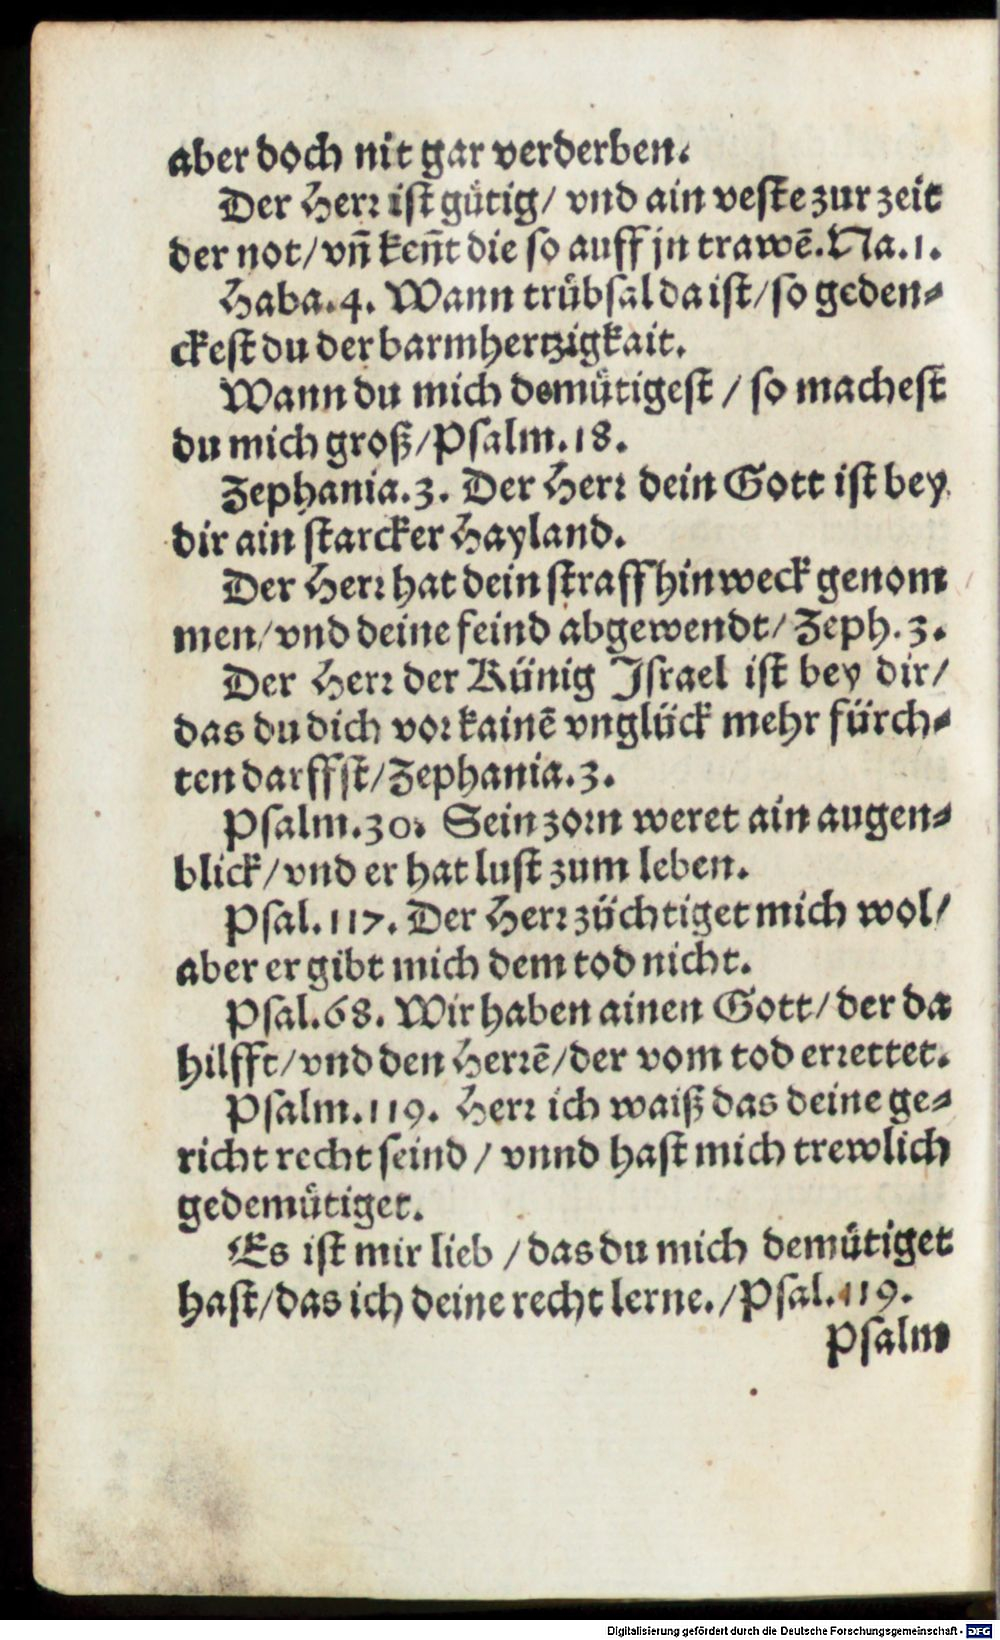 aber doch nit gar verderben.
Der Herr ist gütig/ vnd ain veste zur zeit
der not/ vñ keñt die so auff jn trawē. Na. 1.
Haba. 4. Wann trübsal da ist/ so geden⸗
ckest du der barmhertzigkait.
Wann du mich demütigest / so machest
du mich groß/ Psalm. 18.
Zephania. 3. Der Herr dein Gott ist bey
dir ain starcker Hayland.
Der Herr hat dein straff hinweck genom
men/ vnd deine feind abgewendt/ Zeph. 3.
Der Herr der Künig Israel ist bey dir/
das du dich vor kainē vnglück mehr fürch⸗
ten darffst/ Zephania. 3.
Psalm. 30. Sein zorn weret ain augen⸗
blick/ vnd er hat lust zum leben.
Psal. 117. Der Herr züchtiget mich wol/
aber er gibt mich dem tod nicht.
Psal. 68. Wir haben ainen Gott/ der da
hilfft/ vnd den Herrē/ der vom tod errettet.
Psalm. 119. Herr ich waiß das deine ge⸗
richt recht seind / vnnd hast mich trewlich
gedemütiget.
Es ist mir lieb / das du mich demütiget
hast/ das ich deine recht lerne./ Psal. 119.
Psalm
Digitalisierung gefördert durch die Deutsche Forschungsgemeinschaft - DFG